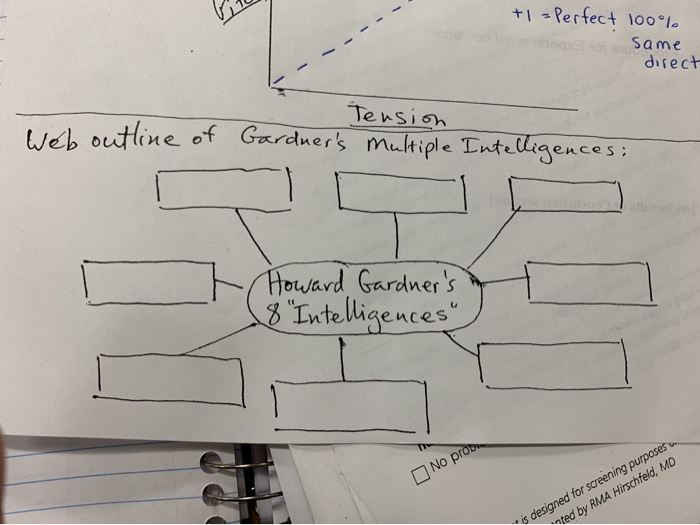 +1 = Perfect 100%
same
direct
Tension
Web outline of Gardner's Multiple Intelligences:
Howard Gardner's
8 "Intelligences"
No
is designed for screening purposes
by RMA Hirschfeld, MD